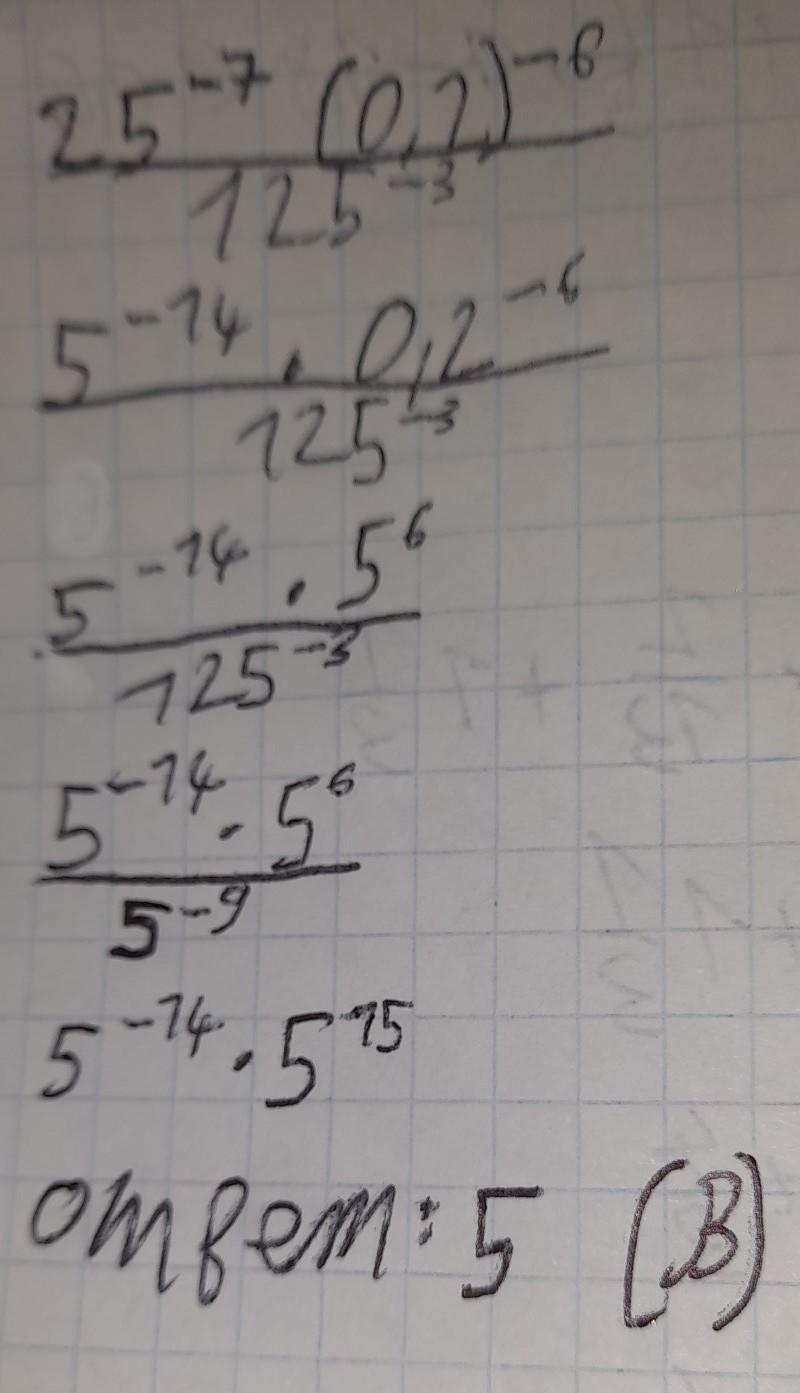 25⁻⁷ (0,2)⁻⁶
125⁻³
5⁻¹⁴ · 0,2⁻⁶
125⁻³
5⁻¹⁴ · 5⁶
125⁻³
5⁻¹⁴ · 5⁶
5⁻⁹
5⁻¹⁴ · 5¹⁵
ответ: 5 (В)